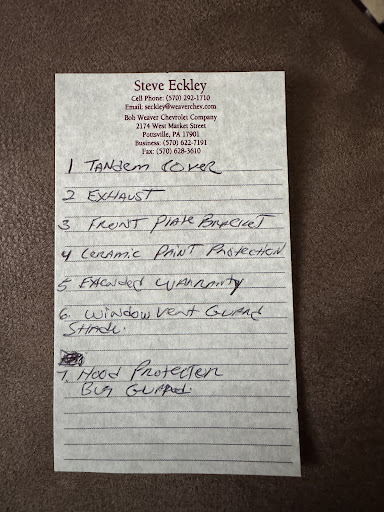 Steve Eckley
Cell Phone: (570) 292-1710
Email: seckley@weaverchev.com
Bob Weaver Chevrolet Company
2174 West Market Street
Pottsville, PA 17901
Business: (570) 622-7191
Fax: (570) 628-3610
1 TANDEM COVER
2 EXHAUST
3 FRONT PLATE BRACKET
4 CERAMIC PAINT PROTECTION
5 EXTENDED WARRANTY
6. WINDOW VENT GUARD
SHADE.
7. HOOD PROTECTER
BUG GUARD.